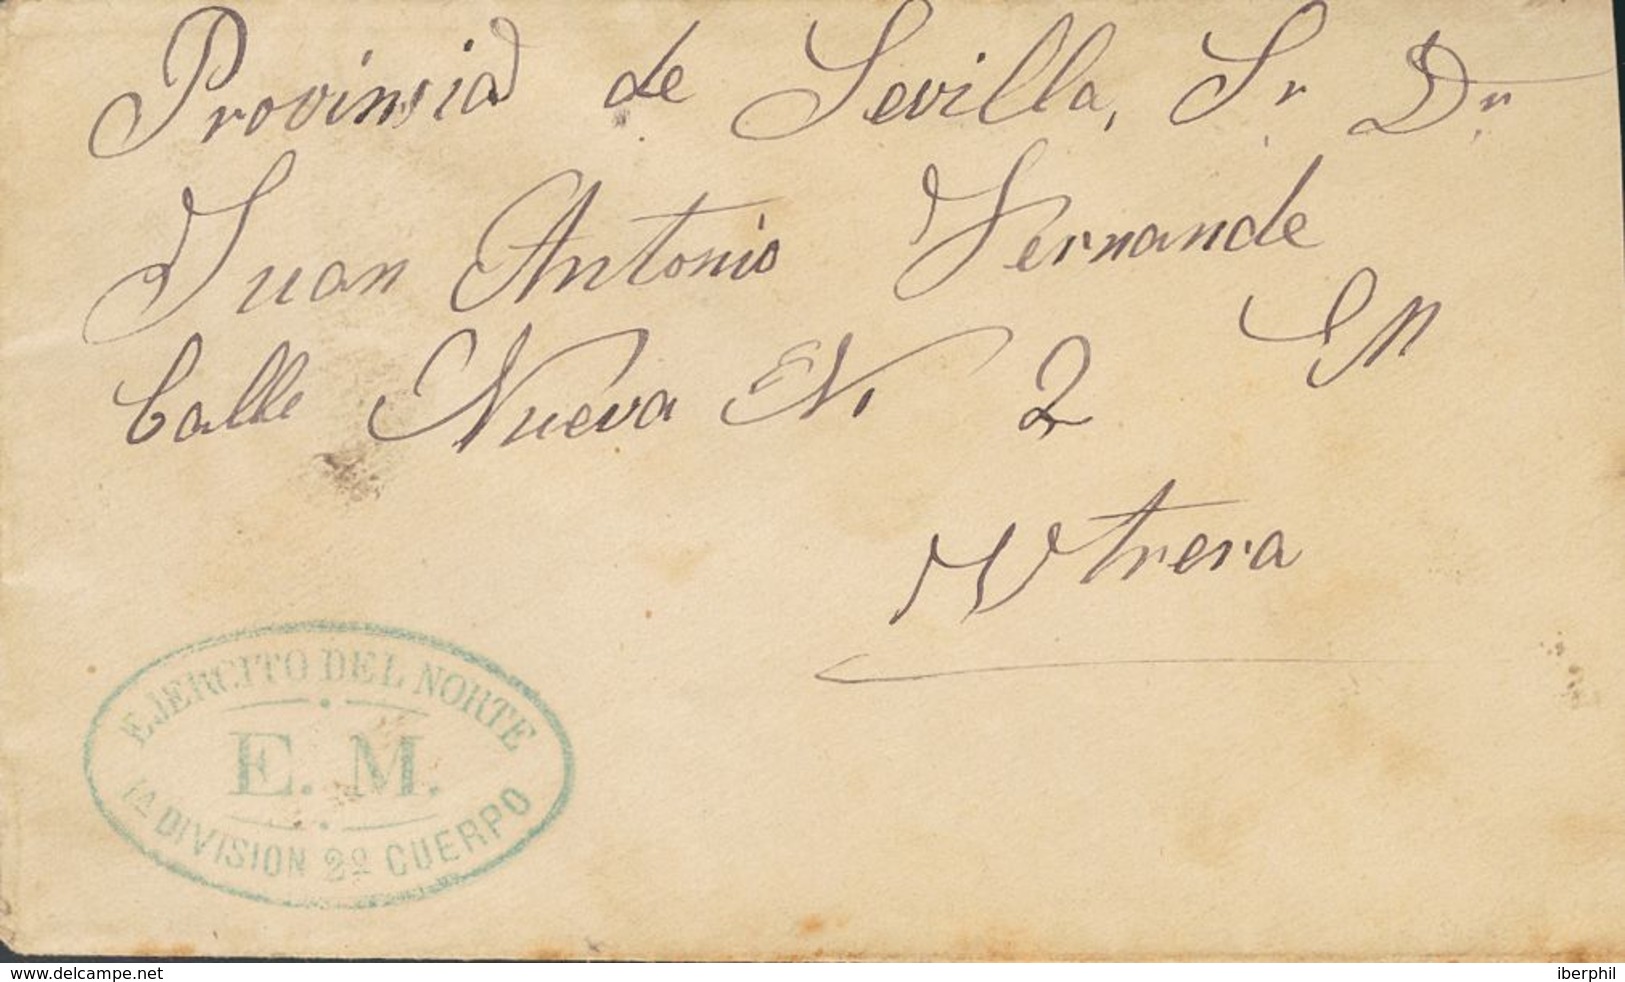 Provinsiad de Sevilla, Sr. Dn
Juan Antonio Fernande
Calle Nueva N. 2 En
Utrera
EJERCITO DEL NORTE
E. M.
1ª DIVISION 2º CUERPO
www.delcampe.net
iberphil